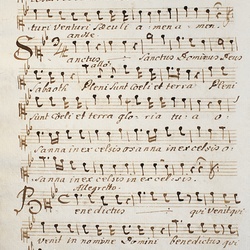 turi venturi sæculi a men a men
andte
Sanctus Sanctus Dominus Deus
allo
Sabaoth Pleni sunt coeli et terra Pleni
sunt coeli et terra gloria tu a o
sanna in excelsis osanna in ex cel o
sanna in ex celsis in ex celsis.
Allegretto.
Benedictus qui venit qui
venit in nomine Domini benedictus qui